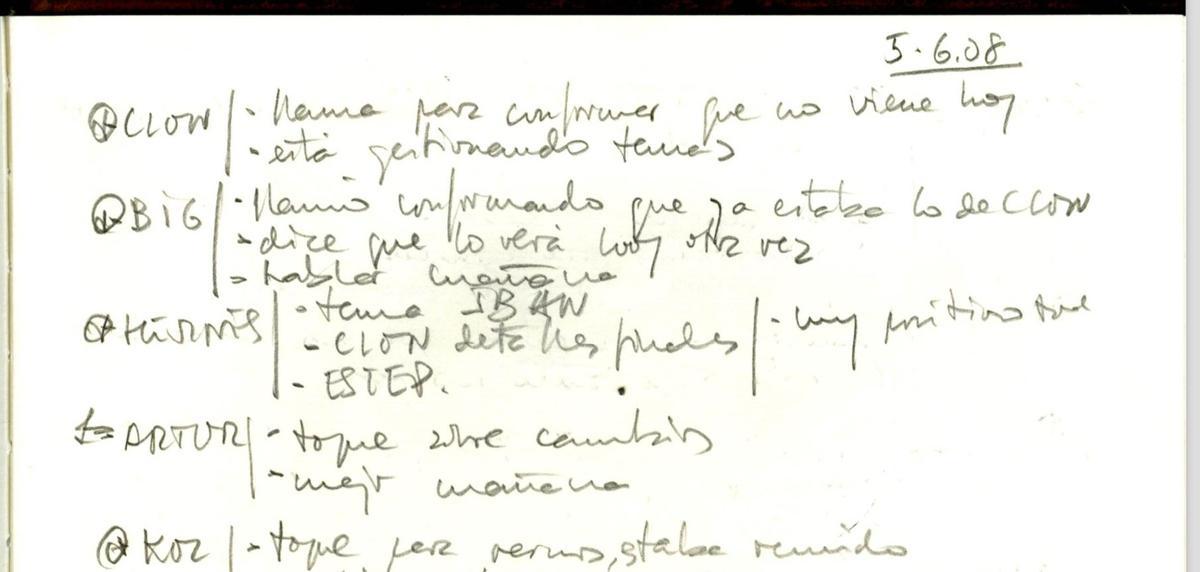 5.6.08
CLON | - llama para confirmar que no viene hoy
- está gestionando temas
BIG | - llamó confirmando que ya estaba lo de CLON
- dice que lo verá hoy otra vez
- hablar mañana
| - tema IBAN
- CLON detalles finales | - muy positivo
- ESTEP.
ARTUR | - toque sobre cambios
- mejor mañana
KOZ | - toque para vernos, estaba reunido